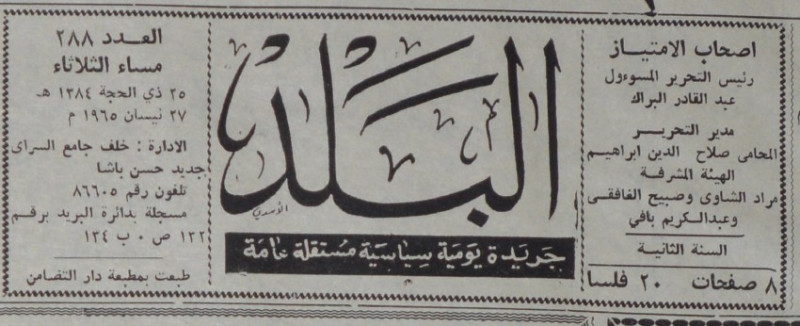 اصحاب الامتياز
رئيس التحرير المسوءول
عبد القادر البراك
مدير التحرير
المحامى صلاح الدين ابراهيم
الهيئة المشرفة
مراد الشاوى وصبيح الغافقى
وعبدالكريم بافي
السنة الثانية
٨ صفحات ٢٠ فلسا
البلد
الأسدي
جريدة يومية سياسية مستقلة عامة
العدد ٢٨٨
مساء الثلاثاء
٢٥ ذي الحجة ١٣٨٤ هـ
٢٧ نيسان ١٩٦٥ م
الادارة : خلف جامع السراى
جديد حسن باشا
تلفون رقم ٨٦٦٠٥
مسجلة بدائرة البريد برقم
١٢٢ ص ٠ ب ١٣٤
طبعت بمطبعة دار التضامن